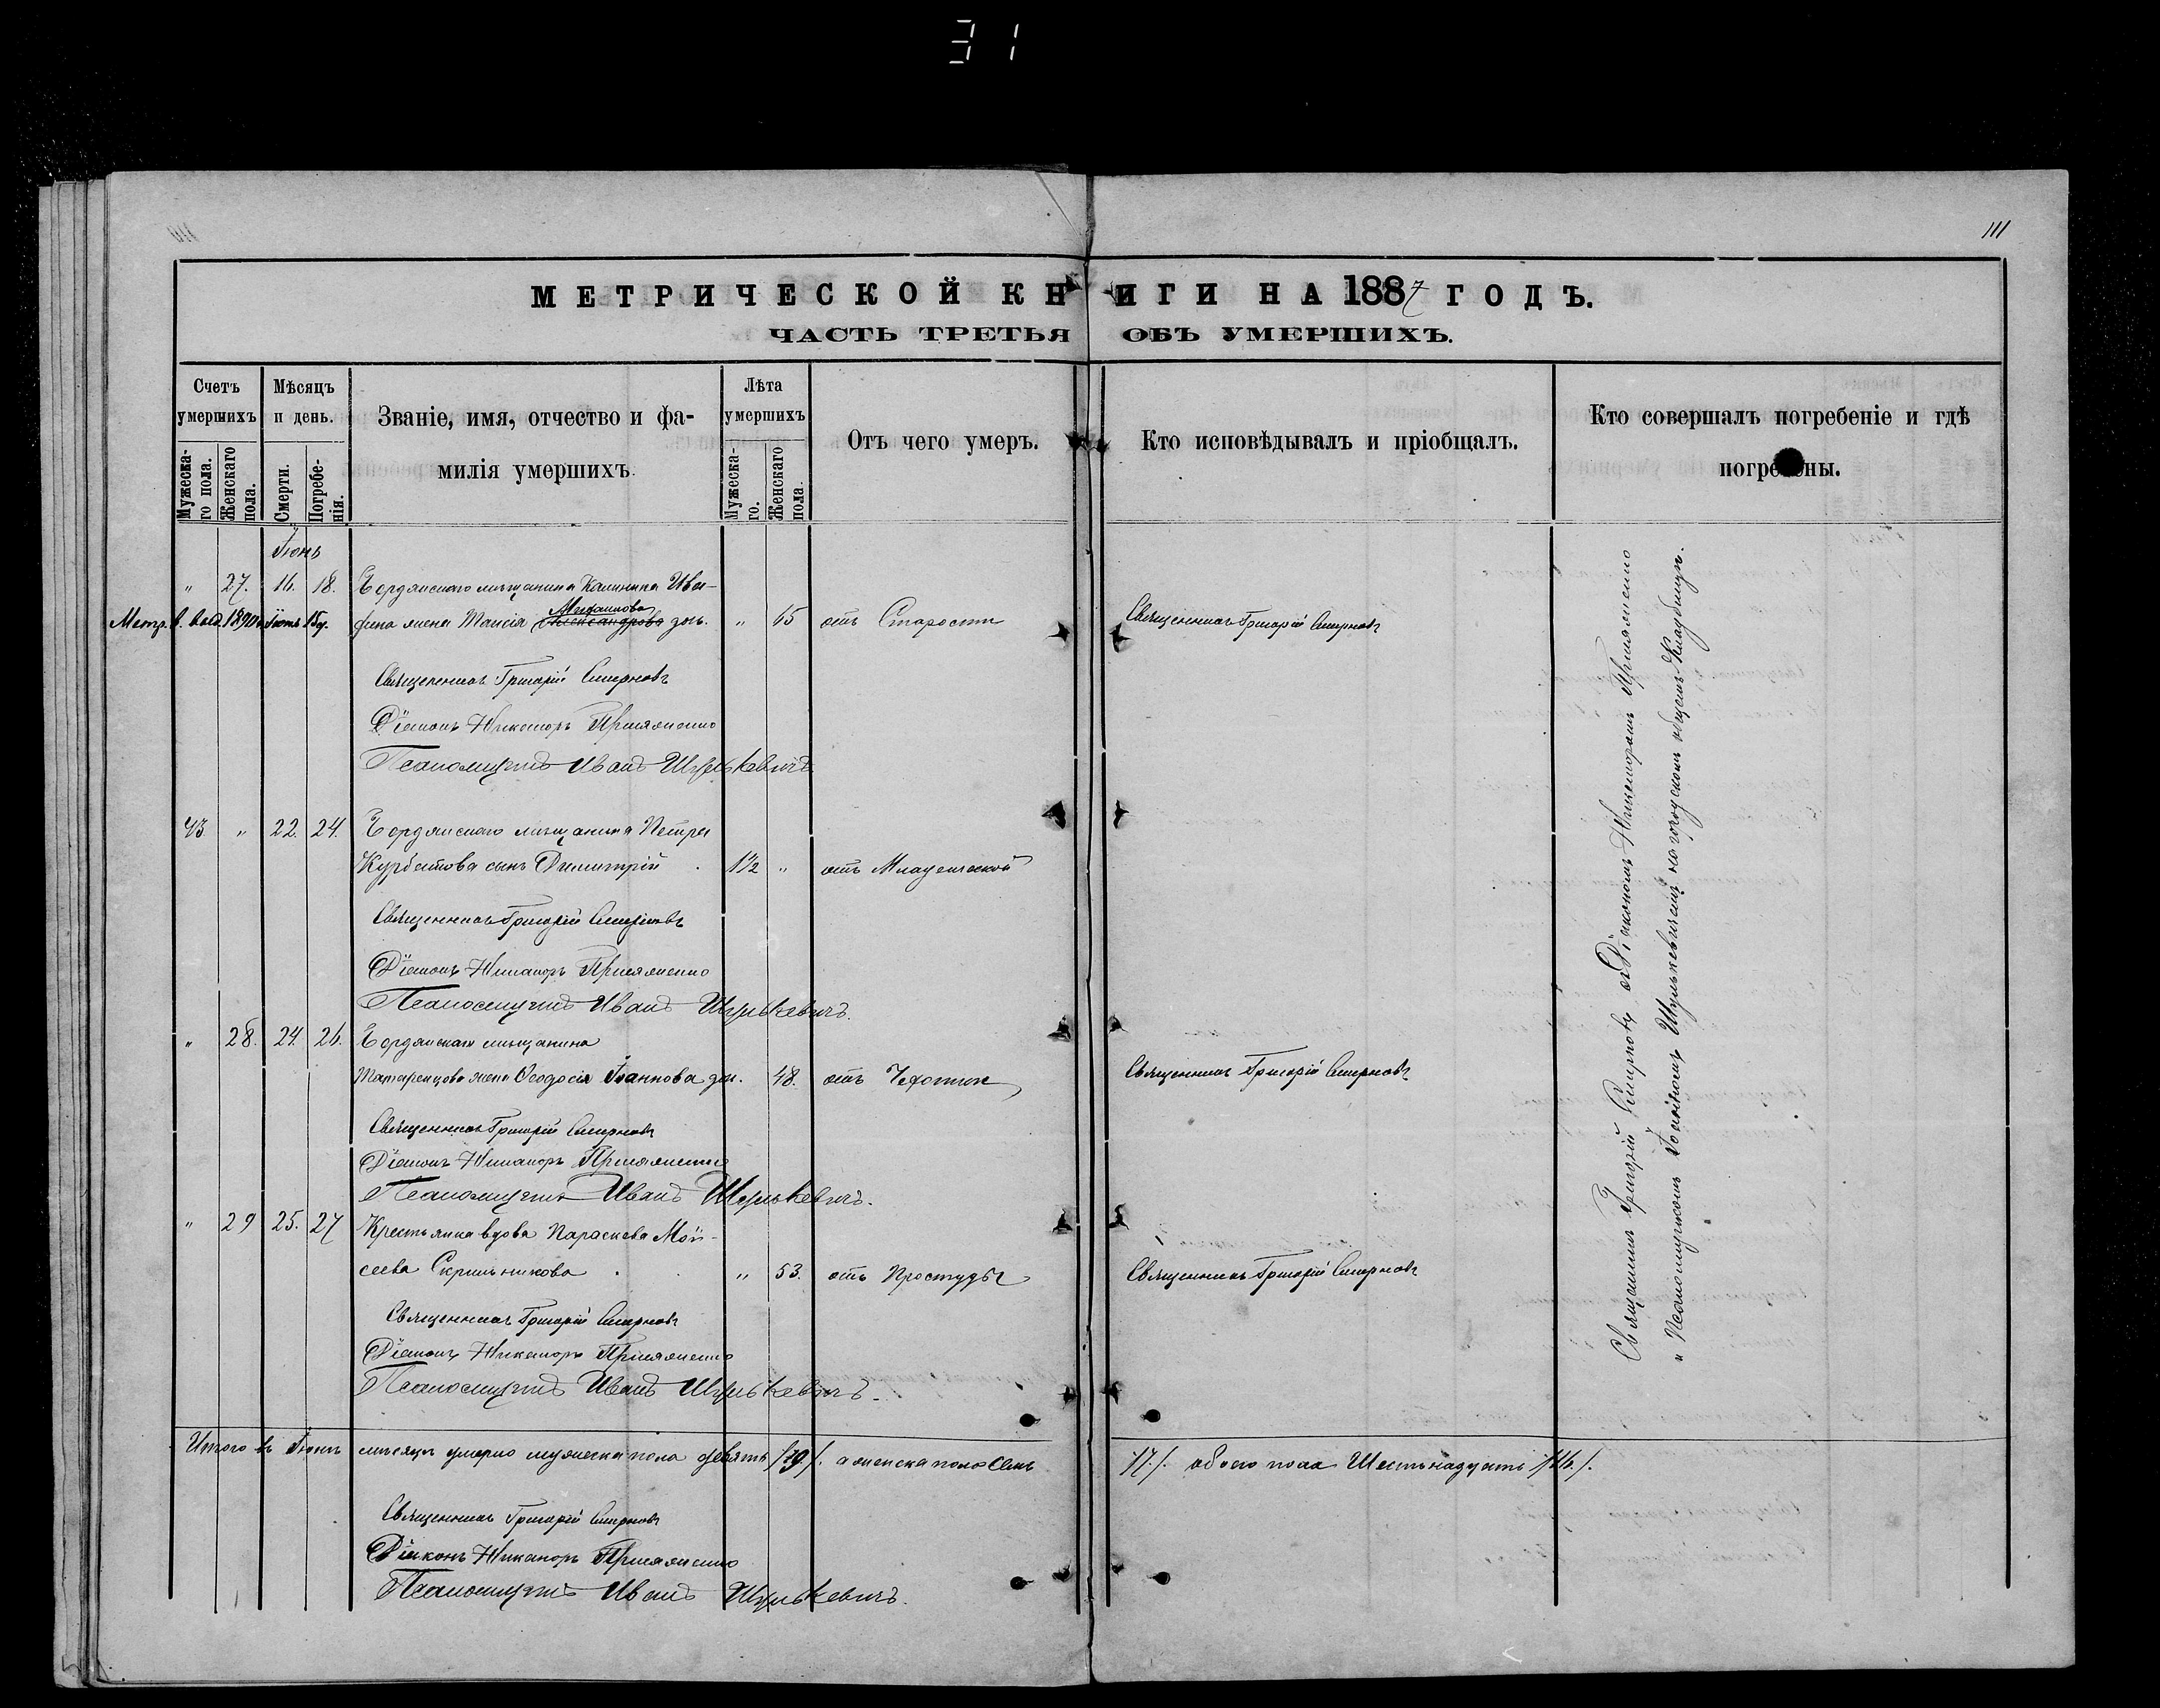 31
111
МЕТРИЧЕСКОЙ КНИГИ НА 1887 ГОДЪ.
ЧАСТЬ ТРЕТЬЯ ОБЪ УМЕРШИХЪ.
Счетъ умершихъ
Мѣсяцъ и день.
Званіе, имя, отчество и фамилія умершихъ.
Лѣта умершихъ
Отъ чего умеръ.
Кто исповѣдывалъ и пріобщалъ.
Кто совершалъ погребеніе и гдѣ погребены.
Мужескаго пола.
Женскаго пола.
Смерти.
Погребенія.
Мужескаго.
Женскаго пола.
Іюнь
" 27. 16. 18. Бердянскаго мѣщанина Калиника
жена Таисія Михаилова Александрова доч. " 15 отъ Старости Священникъ Григорій Смирновъ
Метр. 1890 15
Священникъ Григорій Смирновъ
Діаконъ Никаноръ Присяженко
Псаломщикъ Иванъ Шулькевичъ
43 " 22. 24. Бердянскаго мѣщанина Петра
Курбатова сынъ Димитрій 1½ " отъ Младенческой
Священникъ Григорій Смирновъ
Діаконъ Никаноръ Присяженко
Псаломщикъ Иванъ Шулькевичъ.
" 28. 24. 26. Бердянскаго мѣщанина
жена Ѳеодосія Іоаннова доч. 48. отъ Чахотки Священникъ Григорій Смирновъ
Священникъ Григорій Смирновъ
Діаконъ Никаноръ Присяженко
Псаломщикъ Иванъ Шулькевичъ.
" 29 25. 27 Крестьянка вдова Параскева Мой-
сеева Скрильникова " 53. отъ Простуды Священникъ Григорій Смирновъ
Священникъ Григорій Смирновъ
Діаконъ Никаноръ Присяженко
Псаломщикъ Иванъ Шулькевичъ.
Священникъ Григорій Смирновъ съ Діакономъ Никаноромъ Присяженко
и Псаломщикомъ Іоанномъ Шулькевичемъ на городскомъ общемъ Кладбищѣ.
Итого въ Іюнѣ мѣсяцѣ умерло мужеска пола девять /9/. а женска пола семь /7./. обоего пола Шестьнадцать /16/.
Священникъ Григорій Смирновъ
Діаконъ Никаноръ Присяженко
Псаломщикъ Иванъ Шулькевичъ.